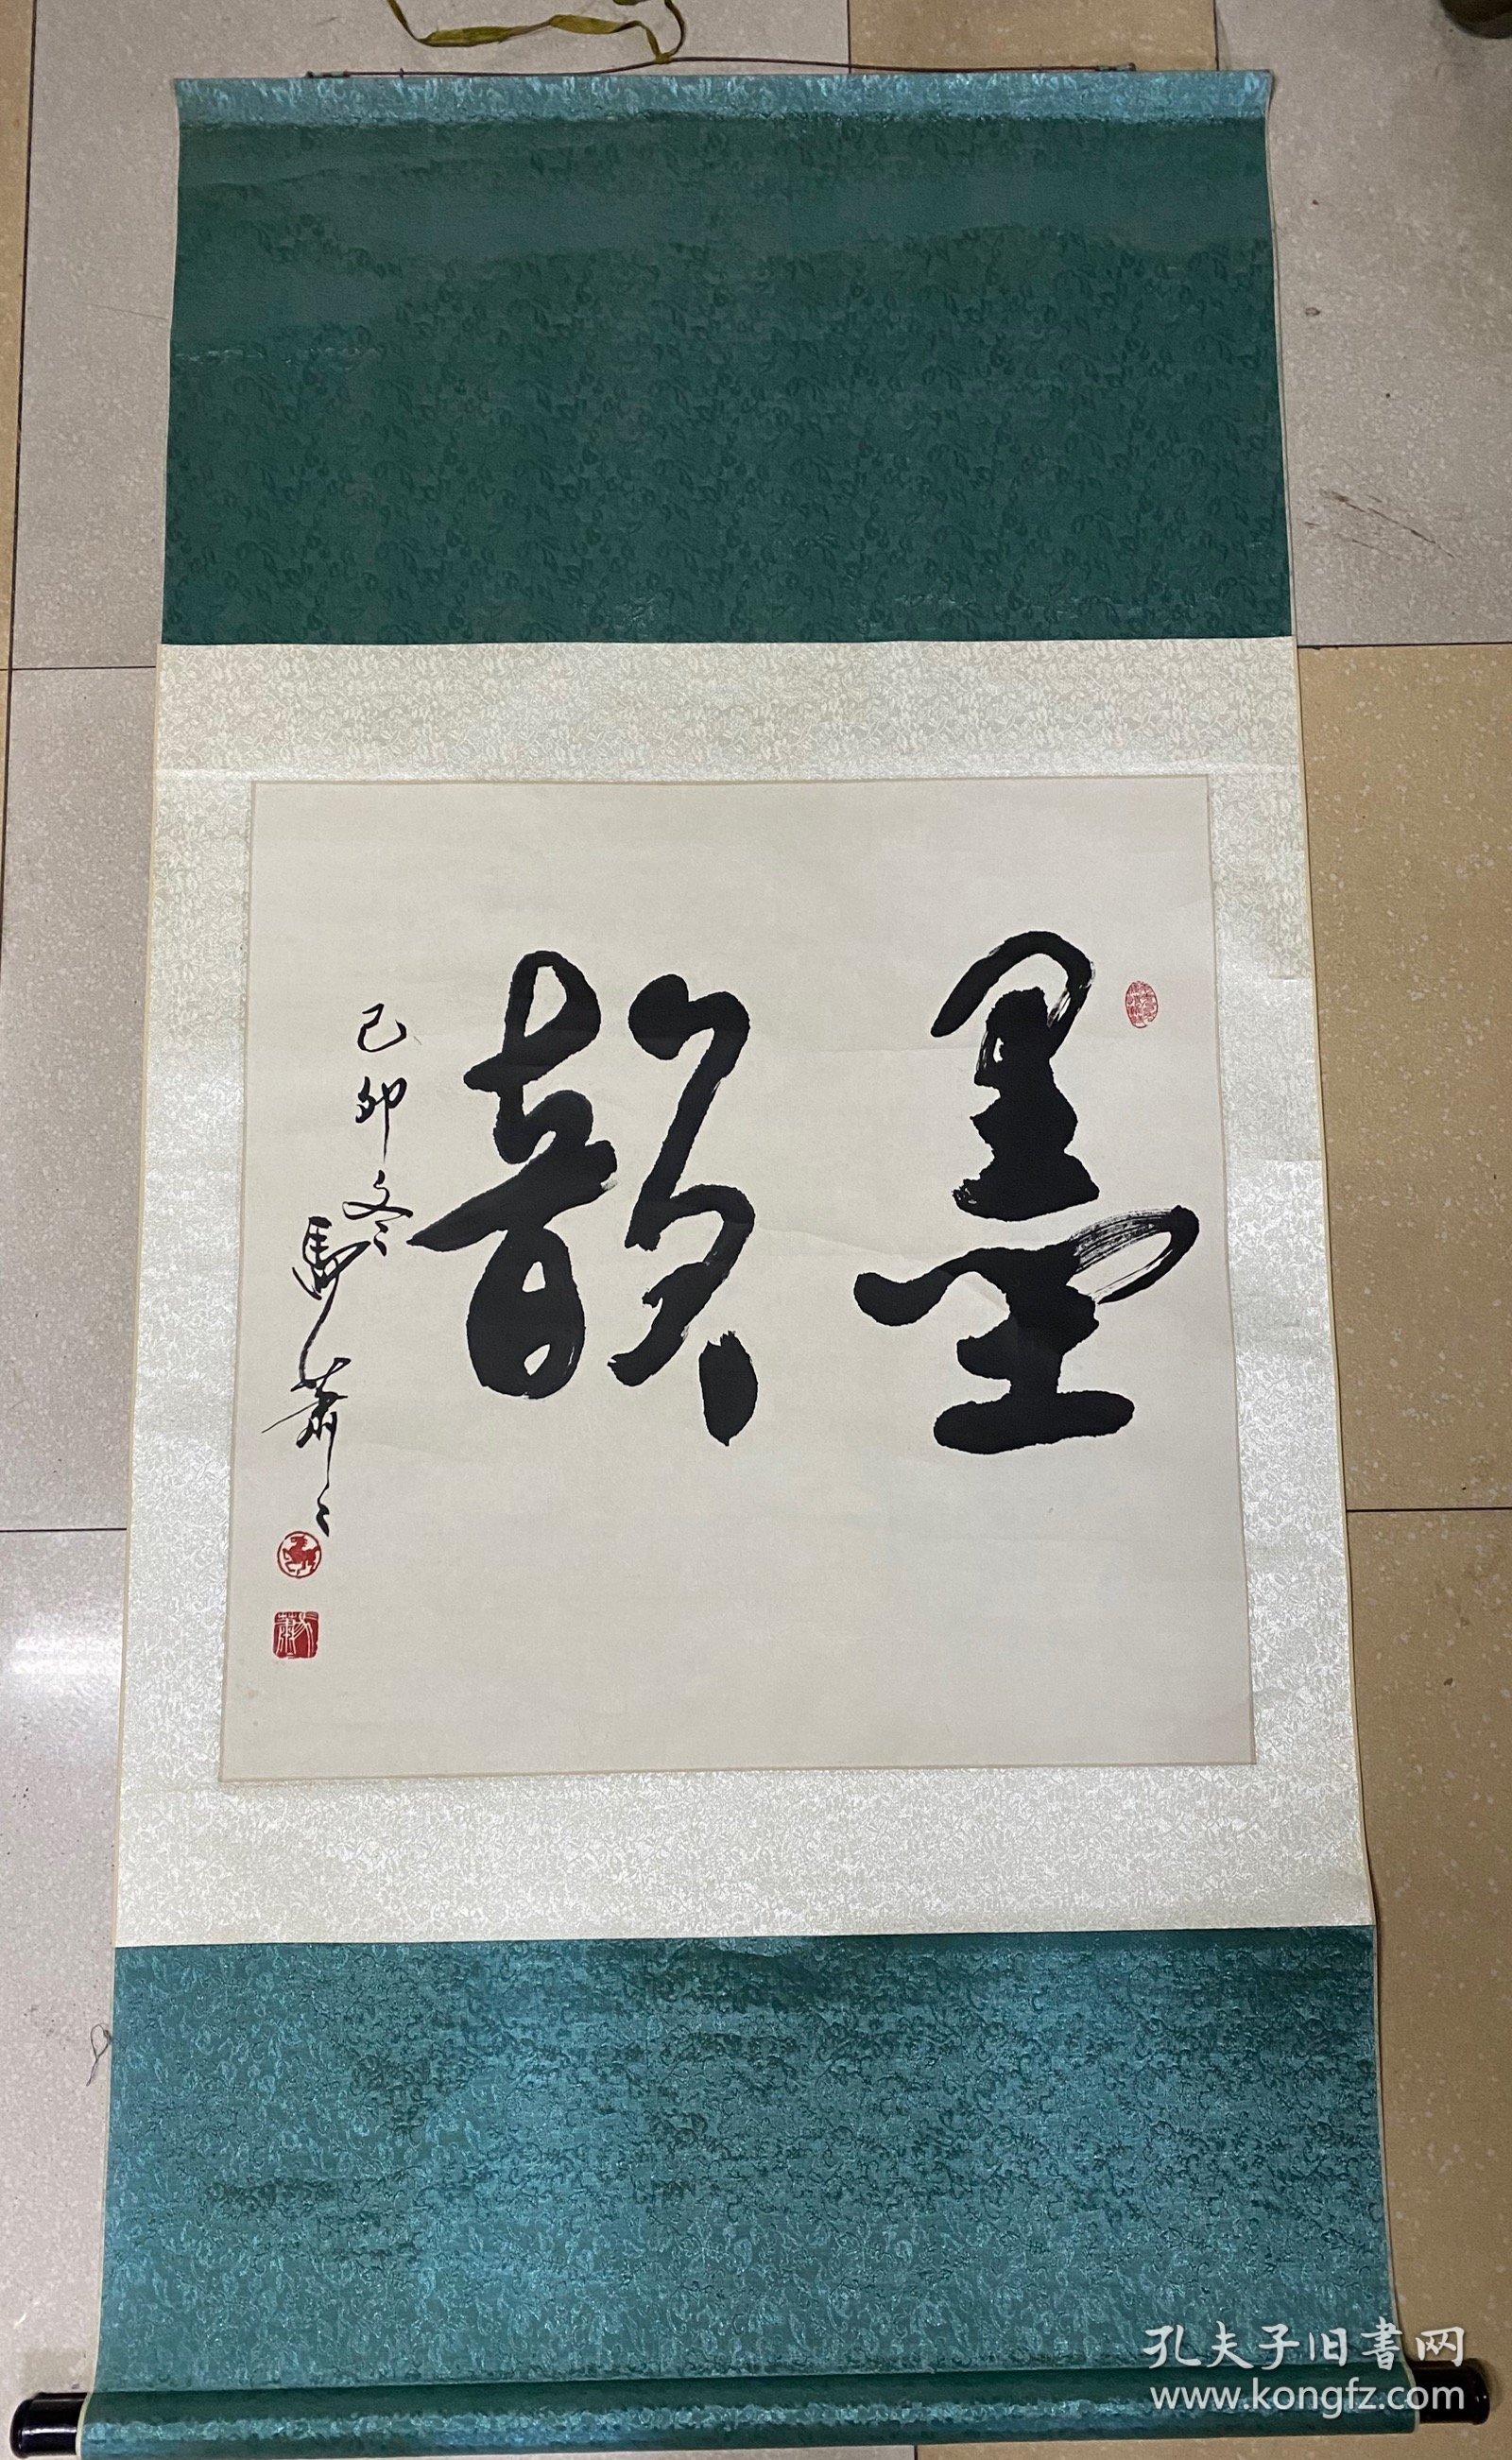 墨韻
己卯冬
馬蕭蕭
孔夫子旧書网
www.kongfz.com